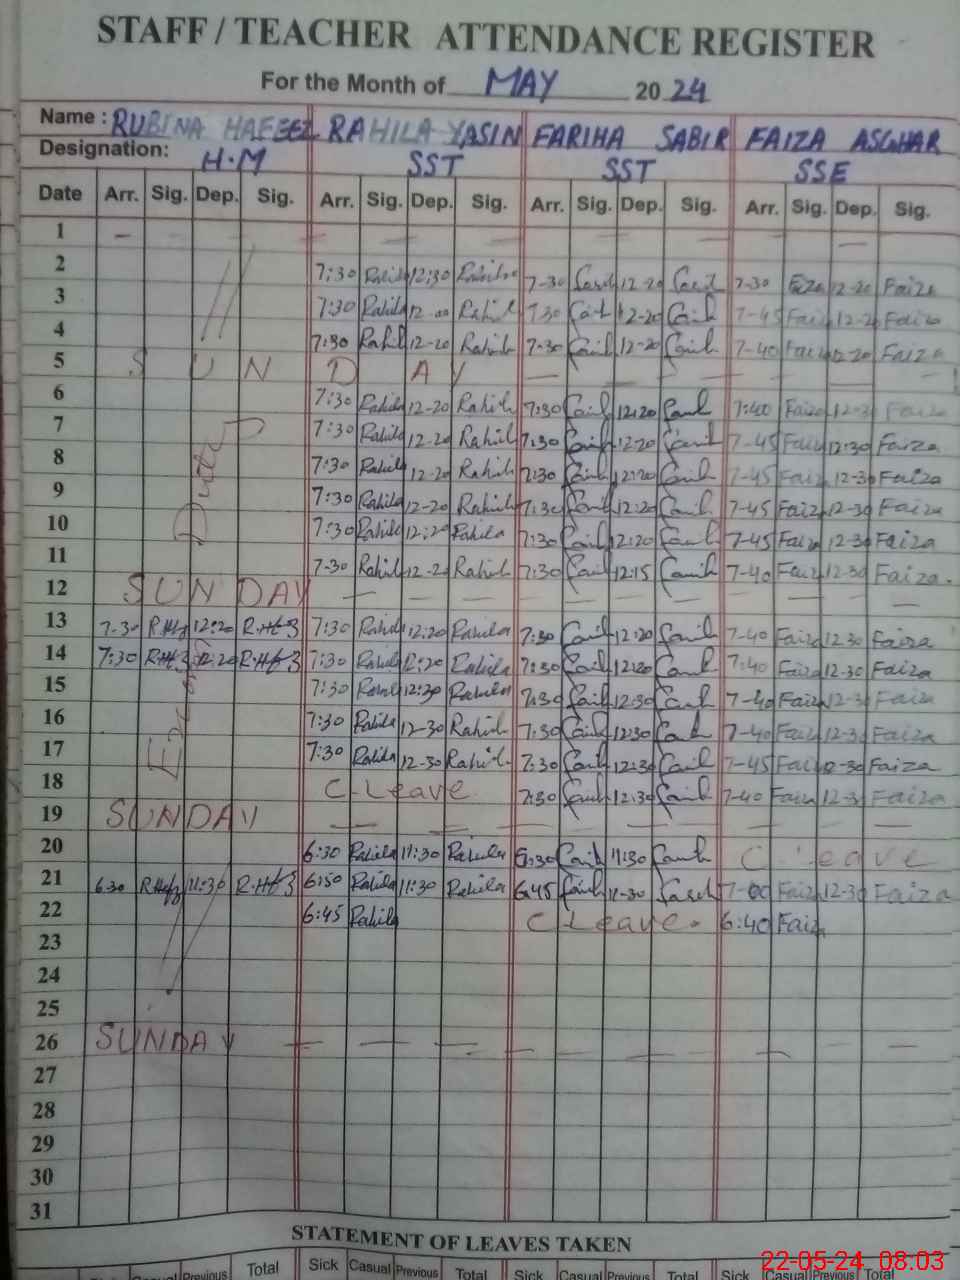 STAFF / TEACHER ATTENDANCE REGISTER
For the Month of MAY 2024
Name : RUBINA HAFEEZ RAHILA YASIN FARIHA SABIR FAIZA ASGHAR
Designation: H.M SST SST SSE
Date Arr. Sig. Dep. Sig. Arr. Sig. Dep. Sig. Arr. Sig. Dep. Sig. Arr. Sig. Dep. Sig.
1
2 7:30 Rahila 12:30 Rahila 7-30 12-20 7-30 Faiza 12-20 Faiza
3 7:30 Rahila 12-20 Rahila 7:30 12-20 7-45 Faiza 12-20 Faiza
4 7:30 Rahila 12-20 Rahila 7-30 12-20 7-40 Faiza 12-20 Faiza
5 SUNDAY
6 7:30 Rahila 12-20 Rahila 7:30 12:20 7:40 Faiza 12-30 Faiza
7 7:30 Rahila 12-20 Rahila 7:30 12:20 7-45 Faiza 12:30 Faiza
8 7:30 Rahila 12-20 Rahila 7:30 12:20 7-45 Faiza 12-30 Faiza
9 7:30 Rahila 12-20 Rahila 7:30 12:20 7-45 Faiza 12-30 Faiza
10 7:30 Rahila 12:20 Rahila 7:30 12:20 7-45 Faiza 12-30 Faiza
11 7-30 Rahila 12-20 Rahila 7:30 12:15 7-40 Faiza 12-30 Faiza
12 SUNDAY
13 7-30 12:20 7:30 Rahila 12:20 Rahila 7:30 12:20 7-40 Faiza 12-30 Faiza
14 7:30 12:20 7:30 Rahila 12:20 Rahila 7:30 12:20 7:40 Faiza 12-30 Faiza
15 7:30 Rahila 12:30 Rahila 7:30 12:30 7-40 Faiza 12-30 Faiza
16 7:30 Rahila 12-30 Rahila 7:30 12:30 7-40 Faiza 12-30 Faiza
17 7:30 Rahila 12-30 Rahila 7:30 12:30 7-45 Faiza 12-30 Faiza
18 C-Leave 7:30 12:30 7-40 Faiza 12-30 Faiza
19 SUNDAY
20 6:30 Rahila 11:30 Rahila 6:30 11:30 C Leave
21 6:30 11:30 6:50 Rahila 11:30 Rahila 6:45 11-30 7-00 Faiza 12-30 Faiza
22 6:45 Rahila C Leave. 6:40 Faiza
23
24
25
26 SUNDAY
27
28
29
30
31
Duty
STATEMENT OF LEAVES TAKEN
Casual Previous Total Sick Casual Previous Total Sick Casual Previous Total Sick Casual Previous Total
22-05-24 08:03